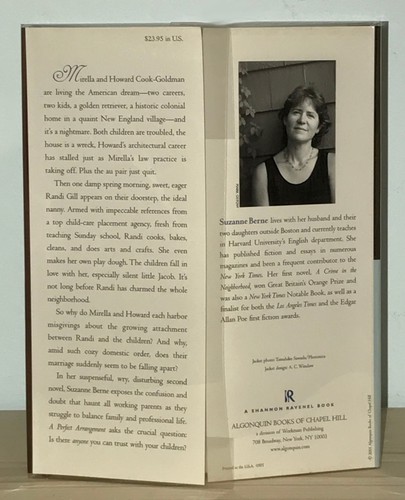 $23.95 in U.S.
Mirella and Howard Cook-Goldman
are living the American dream—two careers,
two kids, a golden retriever, a historic colonial
home in a quaint New England village—and
it's a nightmare. Both children are troubled, the
house is a wreck, Howard's architectural career
has stalled just as Mirella's law practice is
taking off. Plus the au pair just quit.
Then one damp spring morning, sweet, eager
Randi Gill appears on their doorstep, the ideal
nanny. Armed with impeccable references from
a top child-care placement agency, fresh from
teaching Sunday school, Randi cooks, bakes,
cleans, and does arts and crafts. She even
makes her own play dough. The children fall in
love with her, especially silent little Jacob. It's
not long before Randi has charmed the whole
neighborhood.
So why do Mirella and Howard each harbor
misgivings about the growing attachment
between Randi and the children? And why,
amid such cozy domestic order, does their
marriage suddenly seem to be falling apart?
In her suspenseful, wry, disturbing second
novel, Suzanne Berne exposes the confusion and
doubt that haunt all working parents as they
struggle to balance family and professional life.
A Perfect Arrangement asks the crucial question:
Is there anyone you can trust with your children?
Suzanne Berne lives with her husband and their
two daughters outside Boston and currently teaches
in Harvard University's English department. She
has published fiction and essays in numerous
magazines and been a frequent contributor to the
New York Times. Her first novel, A Crime in the
Neighborhood, won Great Britain's Orange Prize and
was also a New York Times Notable Book, as well as a
finalist for both the Los Angeles Times and the Edgar
Allan Poe first fiction awards.
Jacket design: A. C. Winslow
A SHANNON RAVENEL BOOK
ALGONQUIN BOOKS OF CHAPEL HILL
a division of Workman Publishing
708 Broadway, New York, NY 10003
www.algonquin.com
Printed in the U.S.A.
© 2001 Algonquin Books of Chapel Hill